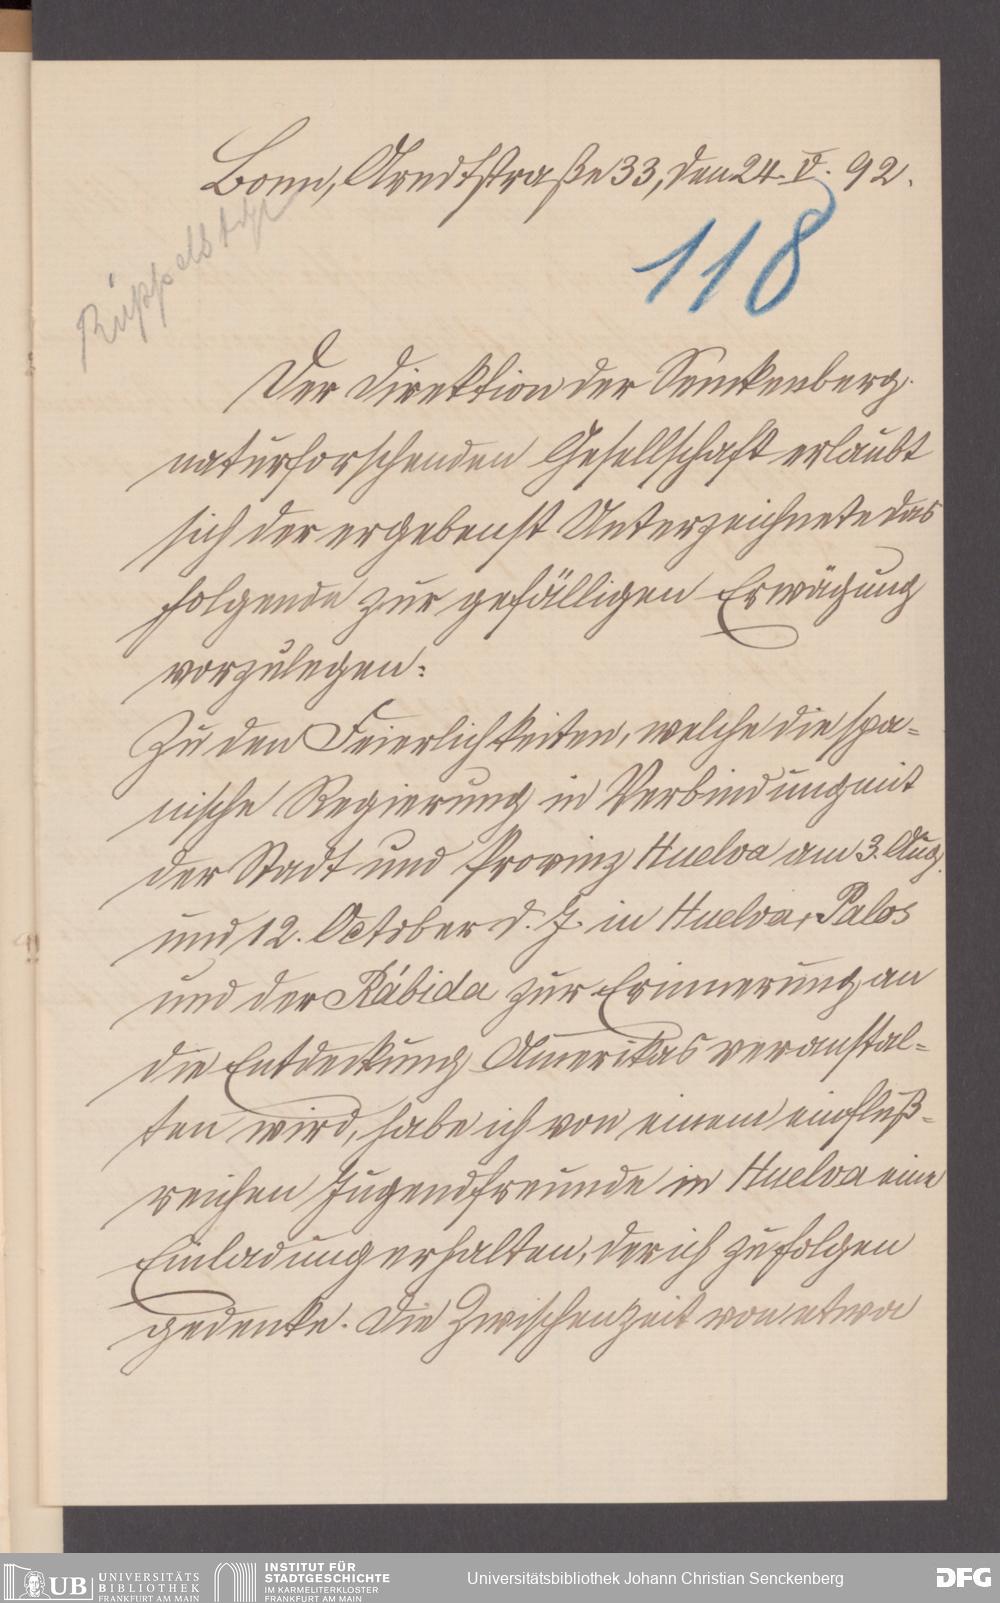 Bonn, Arndtstraße 33, den 24. V. 92.
118
Rüppelstiftg
Der Direktion der Senckenberg.
naturforschenden Gesellschaft erlaubt
sich der ergebenst Unterzeichnete das
folgende zur gefälligen Erwägung
vorzulegen:
Zu den Feierlichkeiten, welche die spa-
nische Regierung in Verbindung mit
der Stadt und Provinz Huelva am 3. Aug.
und 12. October d. J. in Huelva, Palos
und der Rábida zur Erinnerung an
die Entdeckung Amerikas veranstal-
ten wird, habe ich von einem einfluß-
reichen Jugendfreunde in Huelva eine
Einladung erhalten, der ich zu folgen
gedenke. Die Zwischenzeit von etwa
UB UNIVERSITÄTS
BIBLIOTHEK
FRANKFURT AM MAIN
INSTITUT FÜR
STADTGESCHICHTE
IM KARMELITERKLOSTER
FRANKFURT AM MAIN
Universitätsbibliothek Johann Christian Senckenberg
DFG